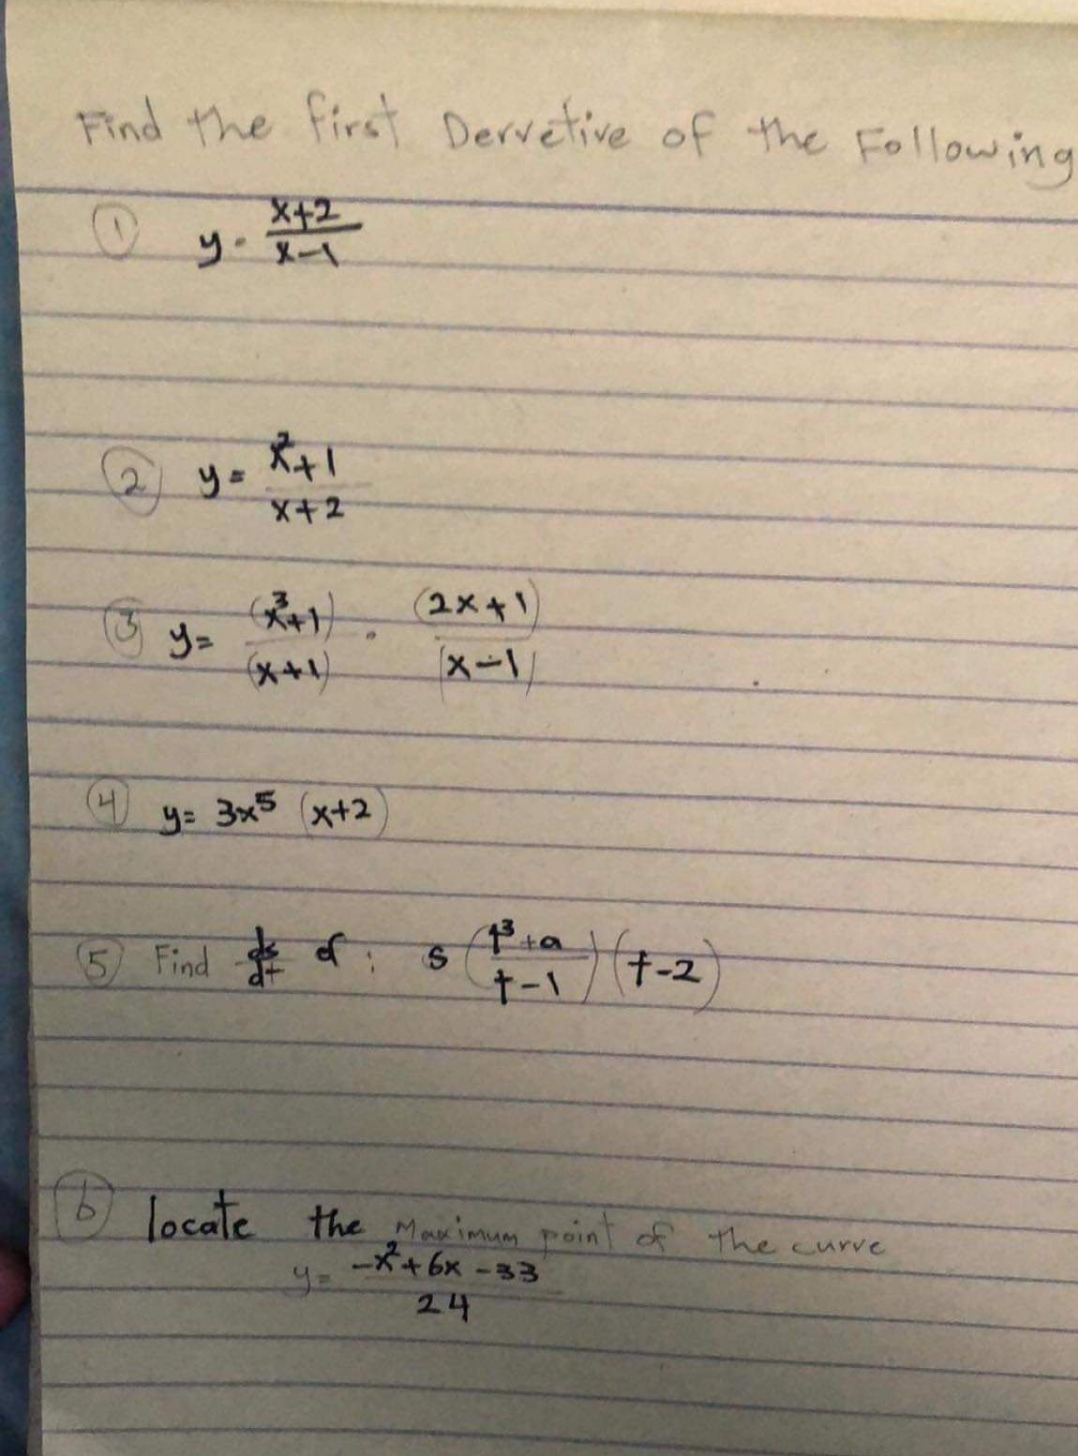 Find the first Dervetive of the Following
① y = x+2 / x-1
② y = x²+1 / x+2
③ y = (x³+1) / (x+1) · (2x+1) / (x-1)
④ y = 3x⁵ (x+2)
⑤ Find ds/dt of : s (t³+a / t-1) (t-2)
⑥ locate the Maximum point of the curve
y = -x²+6x-33 / 24